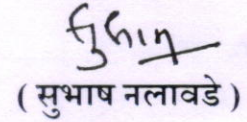 सुभाष
( सुभाष नलावडे )